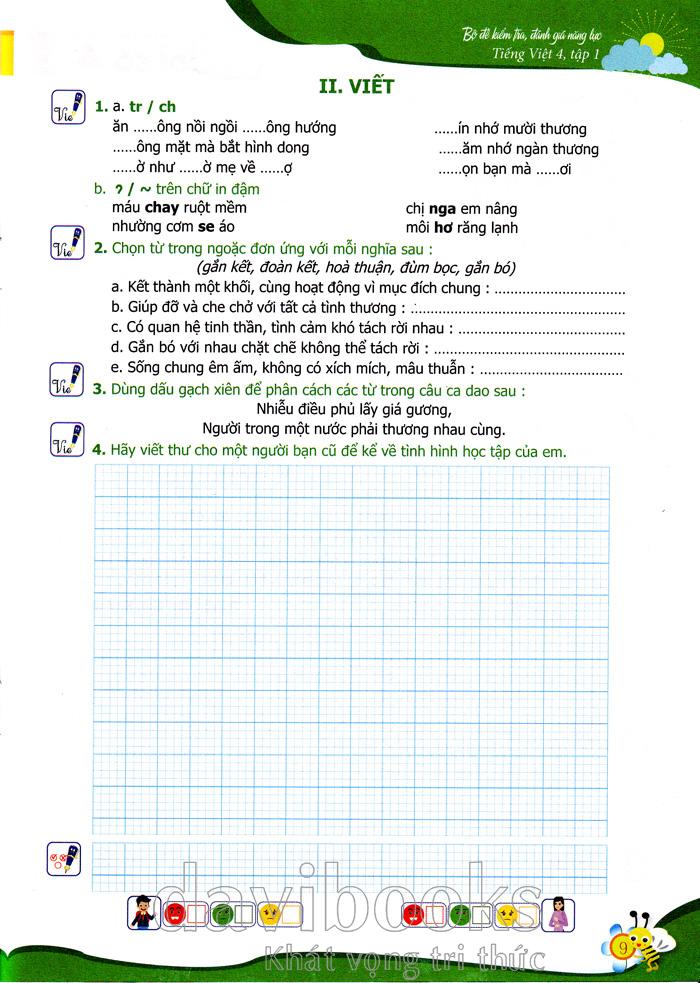 Bộ đề kiểm tra, đánh giá năng lực
Tiếng Việt 4, tập 1
II. VIẾT
Viế
1. a. tr / ch
ăn ......ông nồi ngồi ......ông hướng ......ín nhớ mười thương
......ông mặt mà bắt hình dong ......ăm nhớ ngàn thương
......ờ như ......ờ mẹ về ......ợ ......ọn bạn mà ......ơi
b. ̉ / ~ trên chữ in đậm
máu chay ruột mềm chị nga em nâng
nhường cơm se áo môi hơ răng lạnh
Viế
2. Chọn từ trong ngoặc đơn ứng với mỗi nghĩa sau :
(gắn kết, đoàn kết, hoà thuận, đùm bọc, gắn bó)
a. Kết thành một khối, cùng hoạt động vì mục đích chung : ..............................
b. Giúp đỡ và che chở với tất cả tình thương : ................................................
c. Có quan hệ tinh thần, tình cảm khó tách rời nhau : ......................................
d. Gắn bó với nhau chặt chẽ không thể tách rời : ...........................................
e. Sống chung êm ấm, không có xích mích, mâu thuẫn : .................................
Viế
3. Dùng dấu gạch xiên để phân cách các từ trong câu ca dao sau :
Nhiễu điều phủ lấy giá gương,
Người trong một nước phải thương nhau cùng.
Viế
4. Hãy viết thư cho một người bạn cũ để kể về tình hình học tập của em.
davibooks
Khát vọng tri thức
9